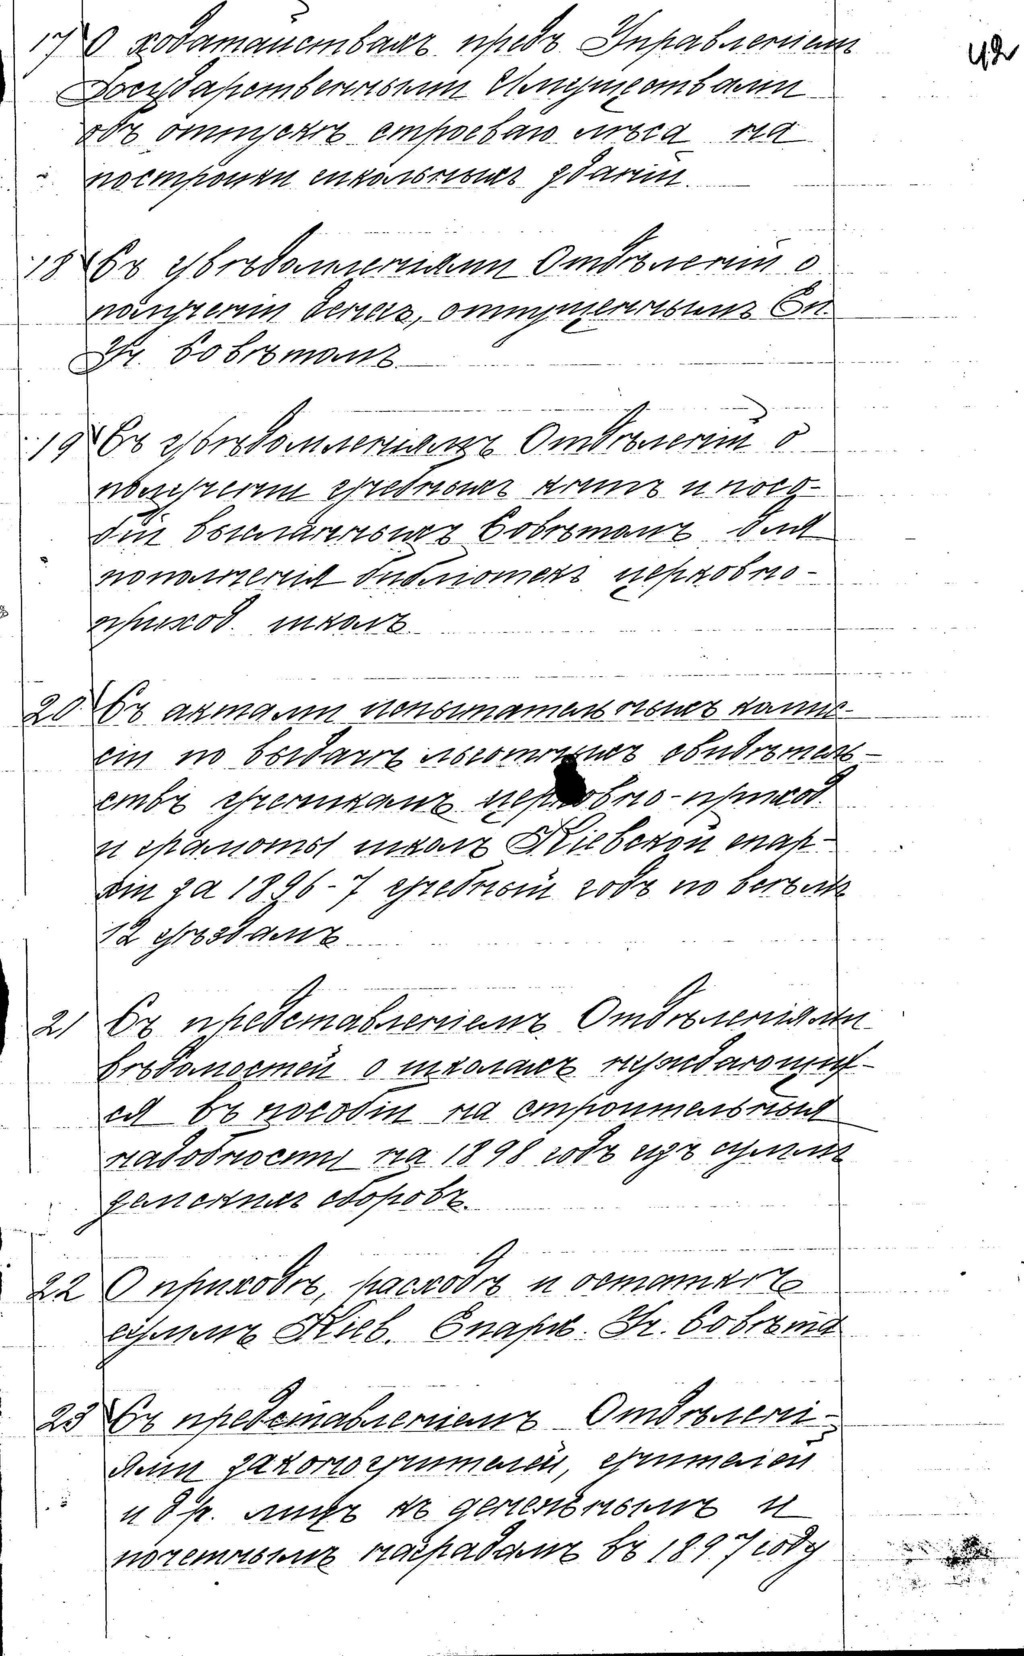 42
17 О ходатайствахъ предъ Управленіем
Государственными Имуществами
объ отпускѣ строеваго лѣса на
постройки школьныхъ зданій.
18 Съ увѣдомленіями Отдѣленій о
полученіи денегъ, отпущенныхъ Еп.
Уч. Совѣтомъ
19 Съ увѣдомленіямъ Отдѣленій о
полученіи учебныхъ книгъ и посо-
бій высланныхъ Совѣтомъ для
пополненія библіотекъ церковно-
приход. школъ
20 Съ актами испытательныхъ комис-
сій по выдачѣ льготныхъ свидѣтель-
ствъ ученикамъ церковно-приход.
и грамоты школъ Кіевской епар-
хіи за 1896-7 учебный годъ по всѣмъ
12 уѣздамъ
21 Съ представленіемъ Отдѣленіями
вѣдомостей о школахъ нуждающих-
ся въ пособіи на строительныя
надобности на 1898 годъ изъ суммъ
земскихъ сборовъ.
22 О приходѣ, расходѣ и остаткѣ
суммъ Кіев. Епарх. Уч. Совѣта
23 Съ представленіемъ Отдѣлені-
ями законоучителей, учителей
и др. лицъ къ денежнымъ и
почетнымъ наградамъ въ 1897 году